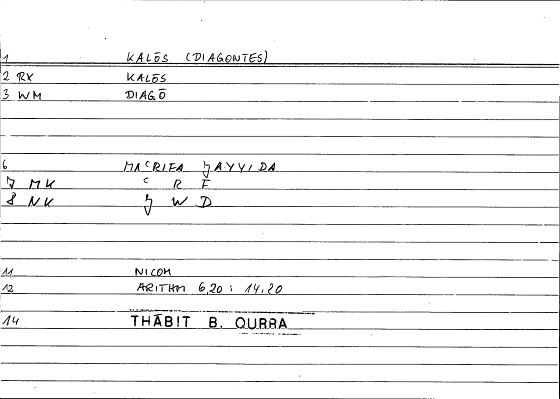 1 KALŌS (DIAGONTES)
2 RX KALŌS
3 WM DIAGŌ
6 MAᶜRIFA ǦAYYIDA
7 MK ᶜ R F
8 NK Ǧ W D
11 NICOM
12 ARITHM 6,20 : 14,20
14 THĀBIT B. QURRA